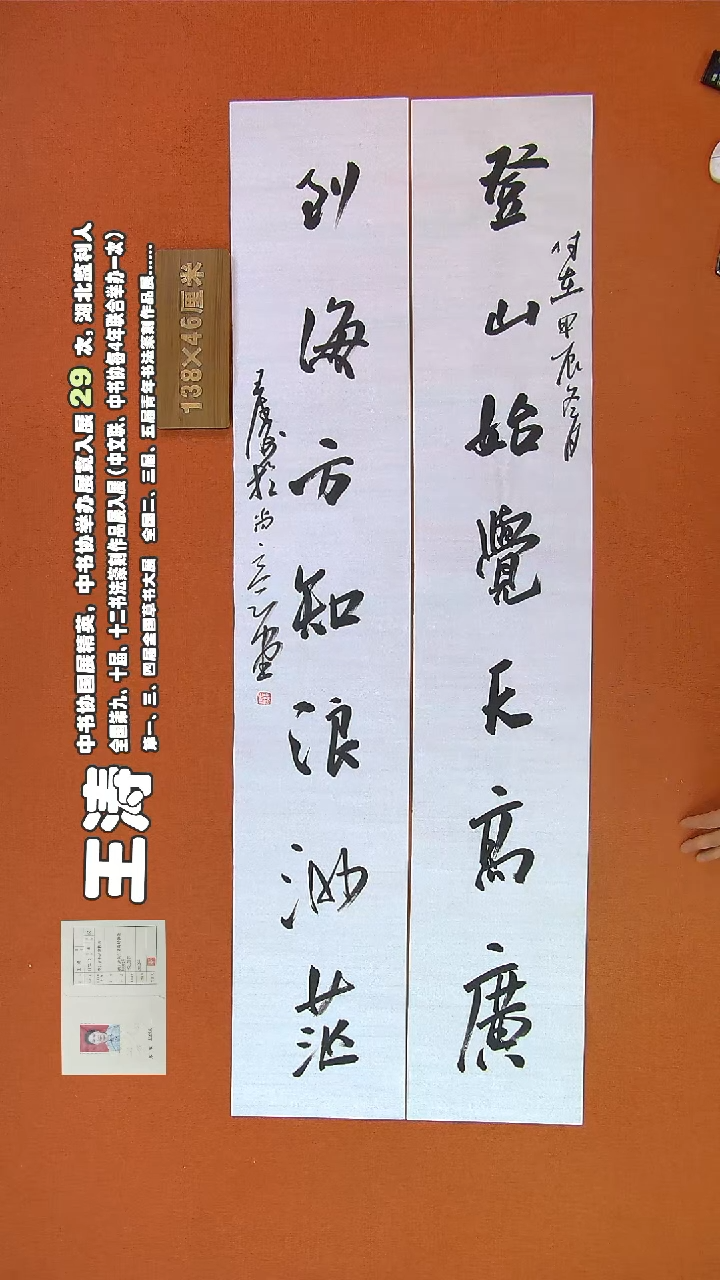 登山始覺天高廣
时在甲辰冬月
到海方知浪渺茫
王涛於尚意堂
138×46厘米
王涛
中书协国展精英，中书协举办展赛入展 29 次，湖北监利人
全国第九、十届、十二书法篆刻作品展入展（中文联、中书协各4年联合举办一次）
第一、三、四届全国草书大展 全国二、三届、五届青年书法篆刻作品展……